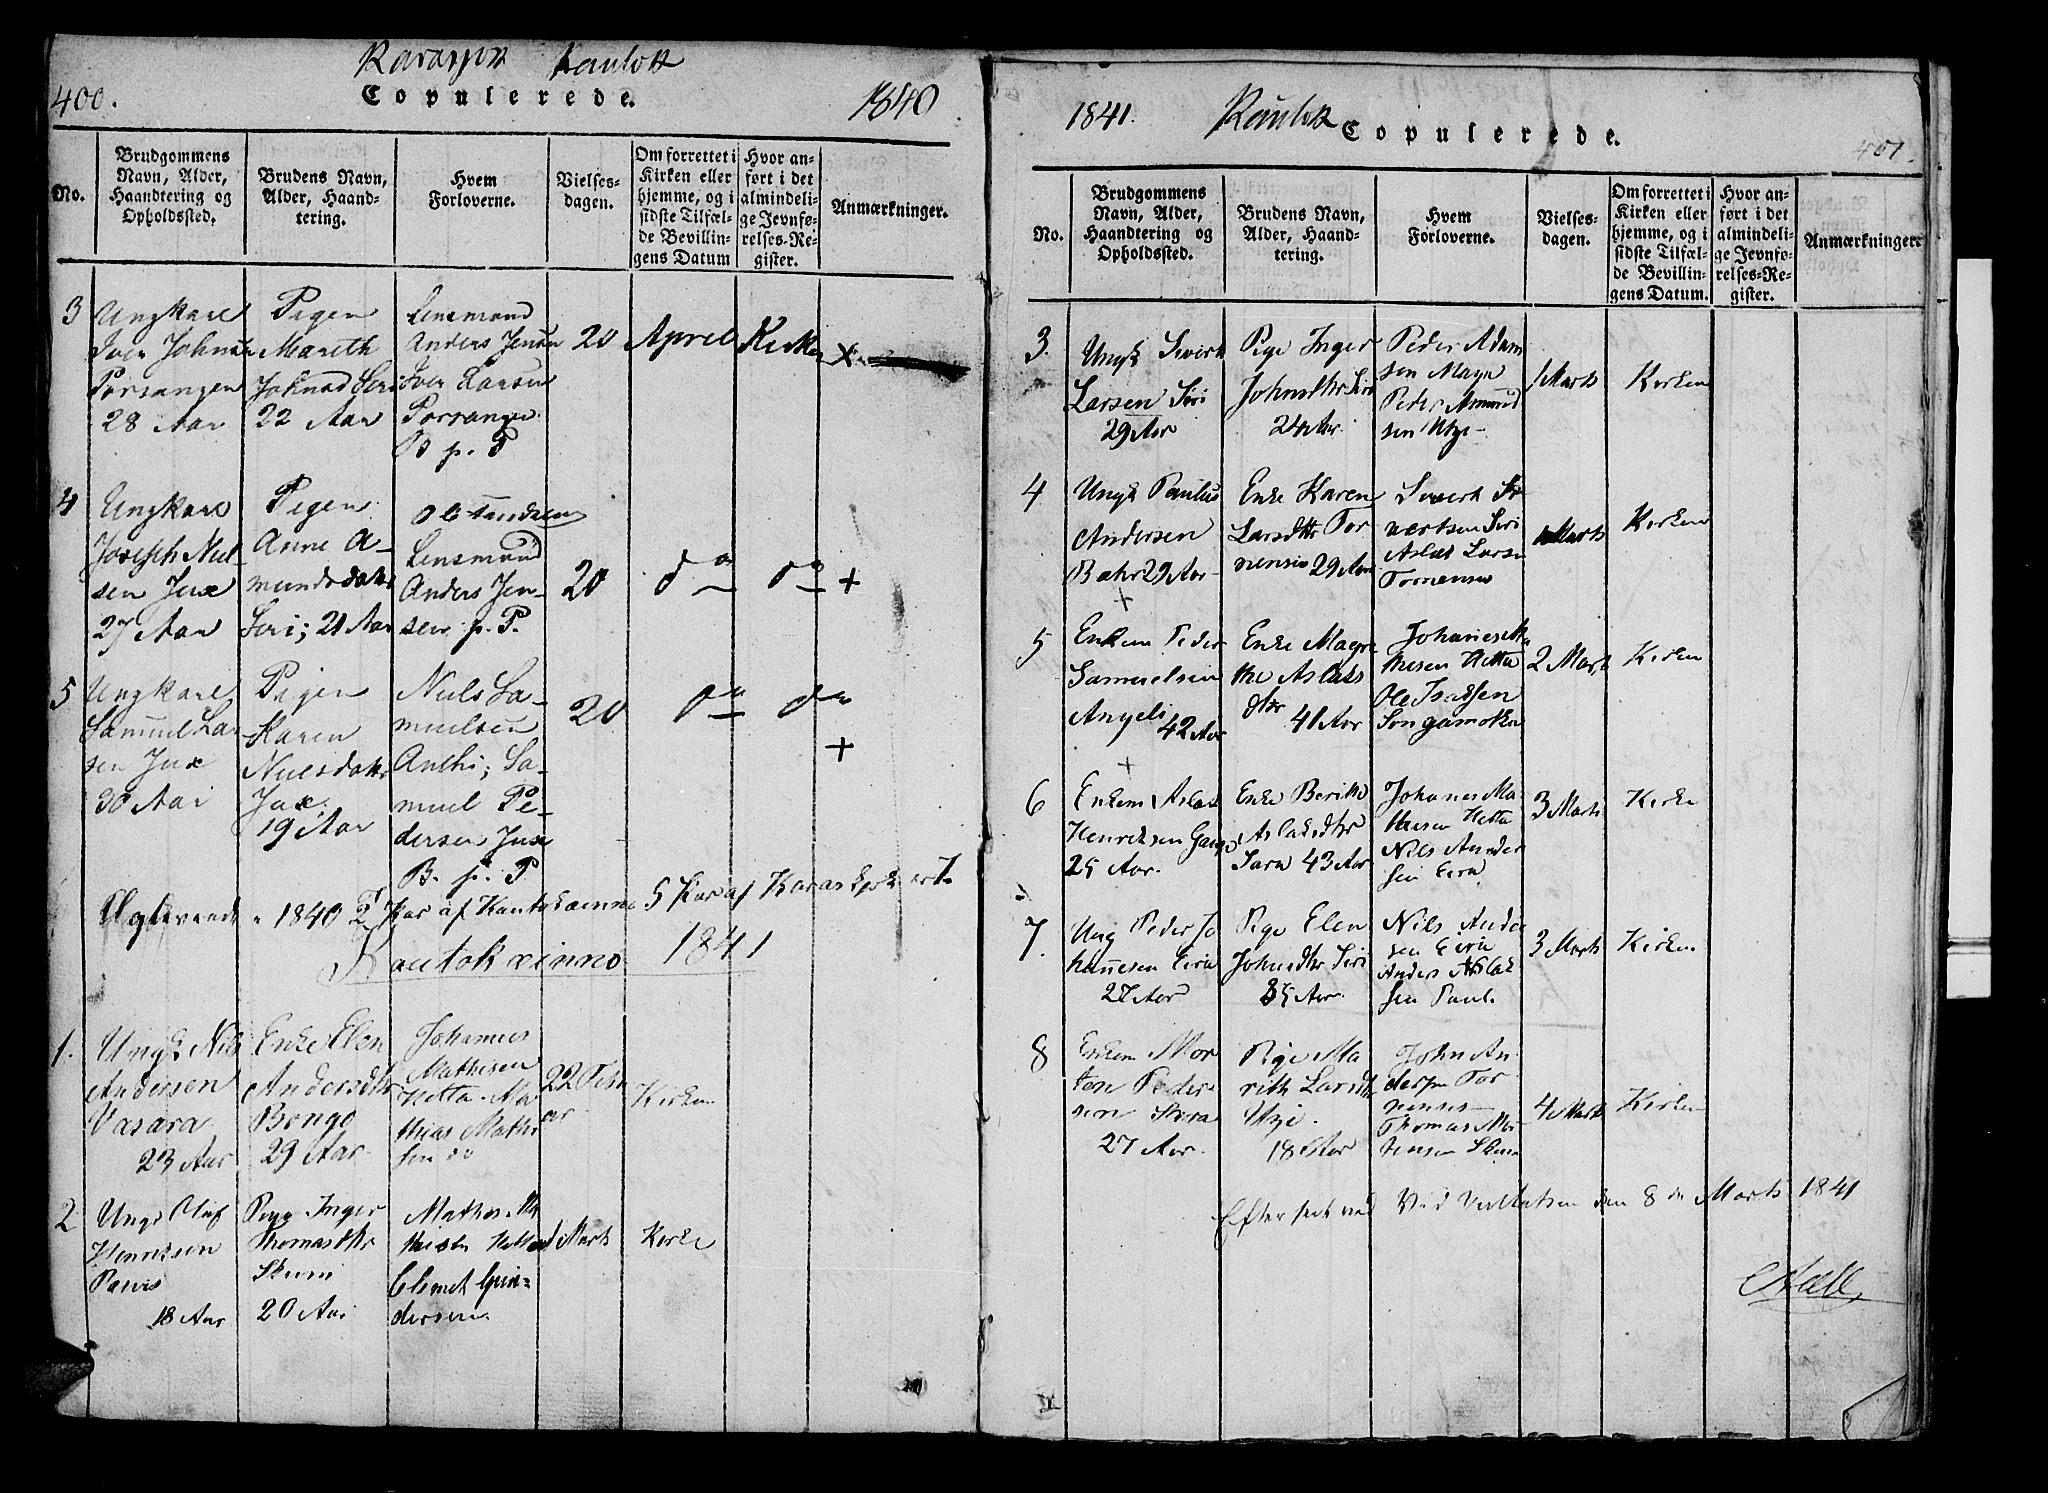 Karasjok Kautok
400.
Copulerede.
1840
No.
Brudgommens Navn, Alder, Haandtering og Opholdssted.
Brudens Navn, Alder, Haandtering.
Hvem Forloverne.
Vielsesdagen.
Om forrettet i Kirken eller hjemme, og i sidste Tilfælde Bevillingens Datum
Hvor anført i det almindelige Jevnførelses-Register.
Anmærkninger.
3
Ungkarl
Iver Johnsen
Porsangen
28 Aar
Pigen
Mareth
Johnsd Seri
22 Aar
Lensmand
Anders Jensen
Iver Larsen
Porsangen
B p. P
20 April Kirken X
4
Ungkarl
Joseph Niel-
sen Jux
27 Aar
Pigen
Anne A-
mundsdatr
Seri; 21 Aar
Lensmand
Anders Jen-
sen p. P.
20 do do +
5
Ungkarl
Samuel Lar
sen Jux
30 Aar
Pigen
Karen
Nielsdatr
Jux
19 Aar
Niels Sa-
muelsen
Anthi; Sa-
muel Pe-
dersen Jux
B. p. P
20 do do
+
1840 2 Par af 5 Par af Karasjok er 7
Kautokeinno 1841
1.
Ungk Nils
Andersen
Vasara
23 Aar
Enke Elen
Andersdtr
Bongo
29 Aar
Johannes
Mathisen
Hetta. Ma
thias Mathi
sen do
22 Febr
Kirken
2
Ungk Oluf
Henriksen
Parvis
18 Aar
Pige Inger
Thomasdtr
Skum
20 Aar
Clemet Gun-
dersen
1 Marts
Kirke
1841.
Kautok
Copulerede.
401.
No.
Brudgommens Navn, Alder, Haandtering og Opholdssted.
Brudens Navn, Alder, Haandtering.
Hvem Forloverne.
Vielsesdagen.
Om forrettet i Kirken eller hjemme, og i sidste Tilfælde Bevillingens Datum.
Hvor anført i det almindelige Jevnførelses-Register.
Anmærkninger.
3.
Ungk Sivert
Larsen Siri
29 Aar
Pige Inger
Johnsdtr Siri
24 Aar.
Peder Adam
sen
Peder Amund
sen Utze
1 Marts
Kirken
4
Ungk Paulus
Andersen
Bahr 29 Aar
+
Enke Karen
Larsdtr Tor
nensis 29 Aar
Sivert Si
vertsen Siri
Aslac Larsn
Tornensis
1 Marts
Kirken
5
Enkem Peder
Samuelsen
Angeli 42 Aar
+
Enke Magre
the Aslaks
dtr 41 Aar
Johannes Ma
thesen Hetta
Ole Isacsen
2 Marts
Kirken
6
Enkem Aslac
Henriksen Gaup
25 Aar.
Enke Berithe
Aslaksdtr
Sara 43 Aar
Johanes Ma
thesen Hetta
Nils Ander
sen Eira
3 Marts
Kirke
7.
Ung Peder Jo
hannesen Eira
27 Aar
Pige Elen
Johnsdtr Siri
35 Aar.
Nils Ander
sen Eira
Anders Aslac
sen Paul.
3 Marts
Kirken
8
Enkem Mor
ten Peder
sen Skora
27 Aar
Pige Ma
rith Larsdtr
Utzi
18 Aar
John An
dersen Tor
nensis
Thomas Mor
tensen Skum
4 Marts
Kirken
Efterseet ved Visitatsen den 8de Marts 1841